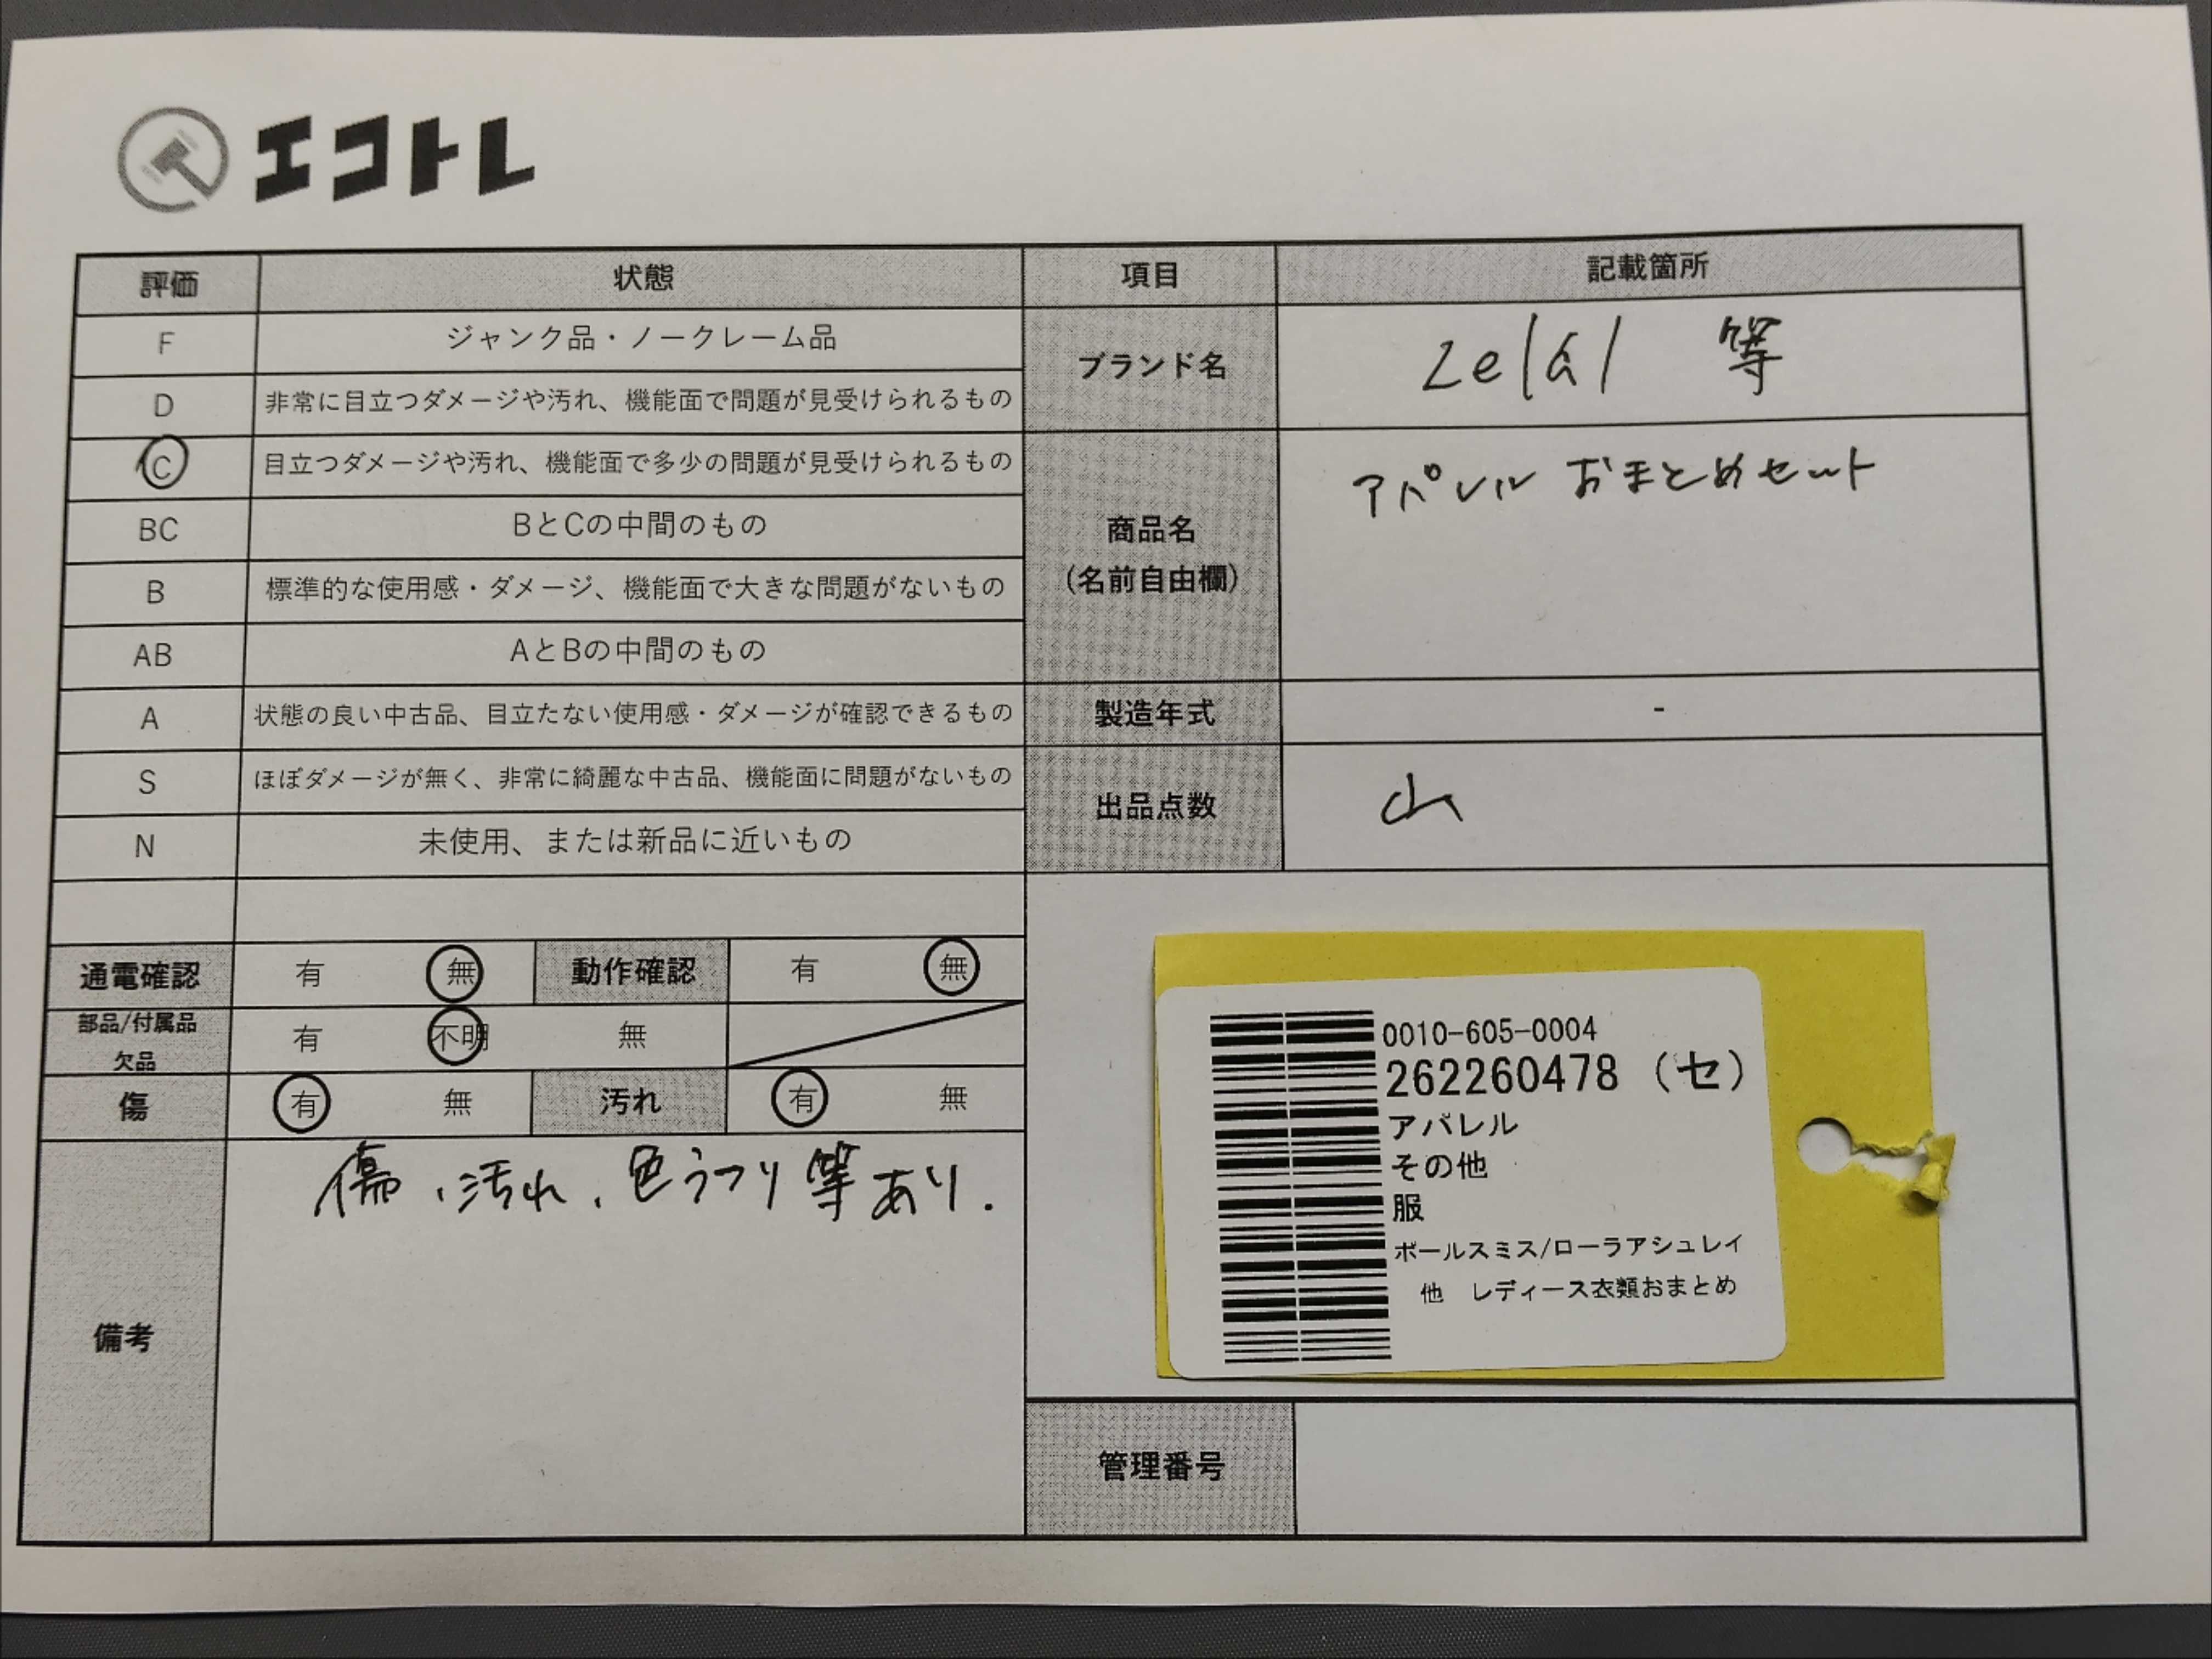 エコトレ
評価 状態 項目 記載箇所
F ジャンク品・ノークレーム品
D 非常に目立つダメージや汚れ、機能面で問題が見受けられるもの
C 目立つダメージや汚れ、機能面で多少の問題が見受けられるもの
BC BとCの中間のもの
B 標準的な使用感・ダメージ、機能面で大きな問題がないもの
AB AとBの中間のもの
A 状態の良い中古品、目立たない使用感・ダメージが確認できるもの
S ほぼダメージが無く、非常に綺麗な中古品、機能面に問題がないもの
N 未使用、または新品に近いもの
ブランド名 等
商品名
(名前自由欄)
アパレル おまとめセット
製造年式 -
出品点数 山
通電確認 有 無 動作確認 有 無
部品/付属品
欠品
有 不明 無
傷 有 無 汚れ 有 無
備考
傷、汚れ、色うつり等あり.
0010-605-0004
262260478 (セ)
アパレル
その他
服
ポールスミス/ローラアシュレイ
他 レディース衣類おまとめ
管理番号